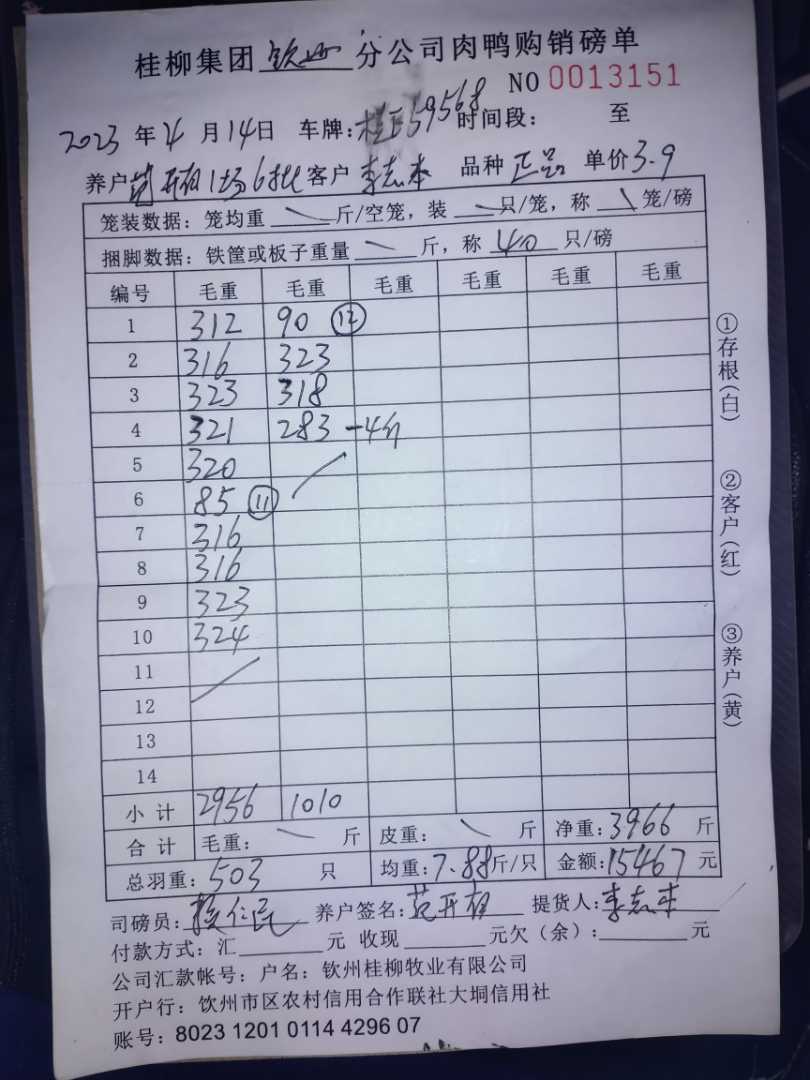 桂柳集团钦州分公司肉鸭购销磅单
NO 0013151
2023年4月14日 车牌:桂 59568 时间段: 至
养户范开朝1场6批 客户 李志本 品种 正品 单价3.9
笼装数据:笼均重 斤/空笼,装 只/笼,称 笼/磅
捆脚数据:铁筐或板子重量 斤,称 40 只/磅
编号 毛重 毛重 毛重 毛重 毛重 毛重
1 312 90 ⑫
2 316 323
3 323 318
4 321 283 -4斤
5 320
6 85 ⑪
7 316
8 316
9 323
10 324
11
12
13
14
小计 2956 1010
合计 毛重: 斤 皮重: 斤 净重:3966 斤
总羽重:503 只 均重:7.88斤/只 金额:15467元
①存根(白)
②客户(红)
③养户(黄)
司磅员: 仁民 养户签名:范开朝 提货人:李志本
付款方式:汇 元 收现 元欠(余): 元
公司汇款帐号:户名:钦州桂柳牧业有限公司
开户行:饮州市区农村信用合作联社大垌信用社
账号:8023 1201 0114 4296 07